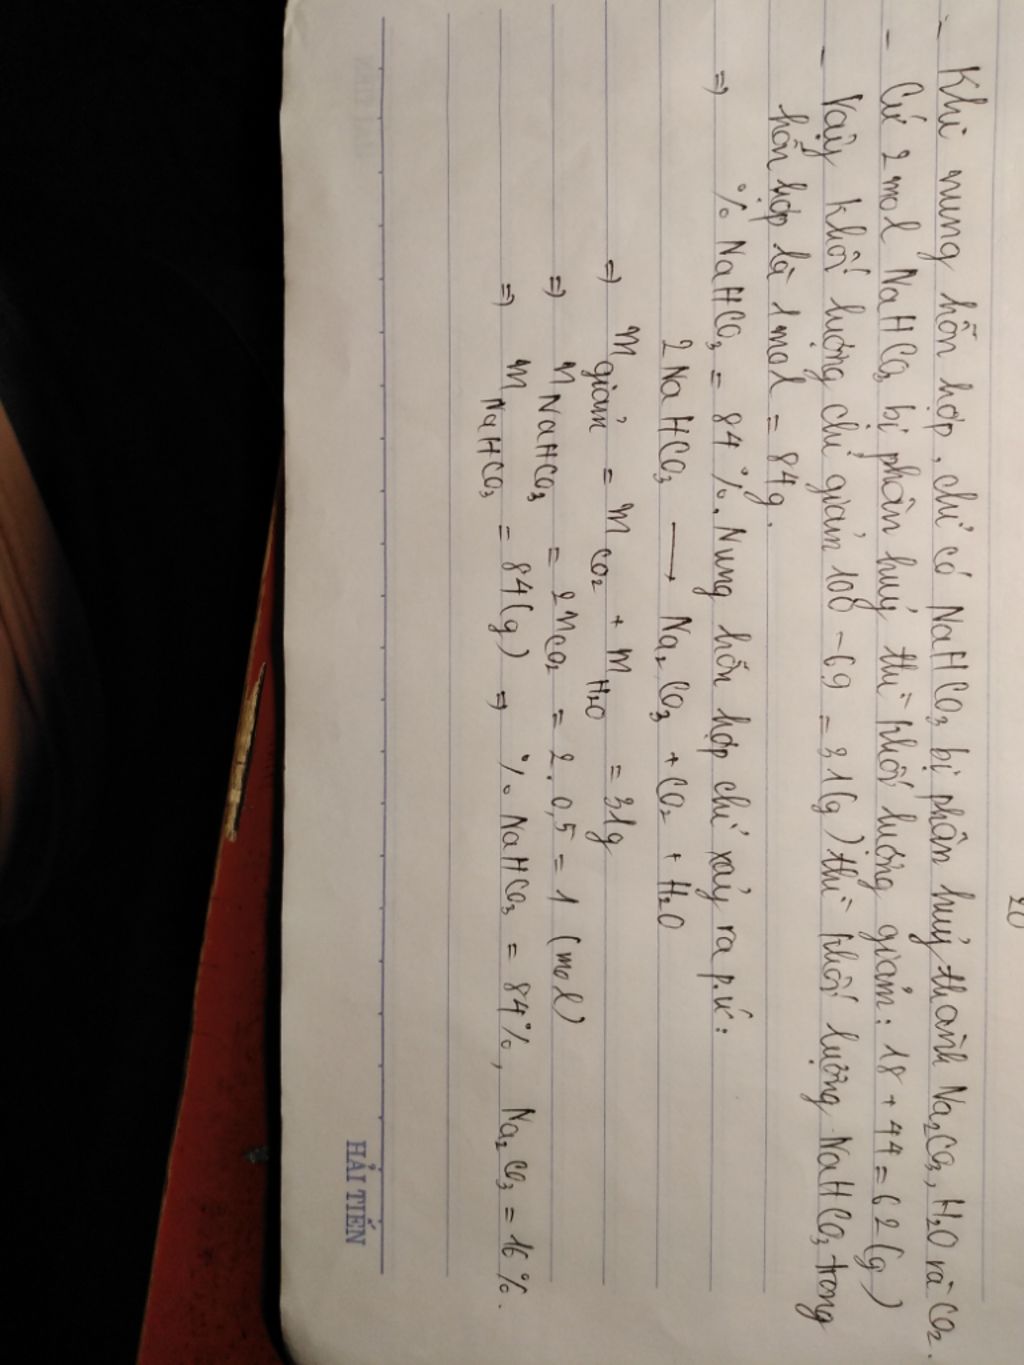 20
- Khi nung hỗn hợp, chỉ có NaHCO3 bị phân huỷ thành Na2CO3, H2O và CO2.
- Cứ 2 mol NaHCO3 bị phân huỷ thì khối lượng giảm: 18 + 44 = 62 (g)
- Vậy khối lượng chỉ giảm 100 - 69 = 31 (g) thì khối lượng NaHCO3 trong
hỗn hợp là 1 mol = 84g.
=> % NaHCO3 = 84 %. Nung hỗn hợp chỉ xảy ra p.ứ:
2NaHCO3 → Na2CO3 + CO2 + H2O
=> m giảm = m CO2 + m H2O = 31g
=> n NaHCO3 = 2n CO2 = 2. 0,5 = 1 (mol)
=> m NaHCO3 = 84 (g) => % NaHCO3 = 84%, Na2CO3 = 16 %.
HẢI TIẾN